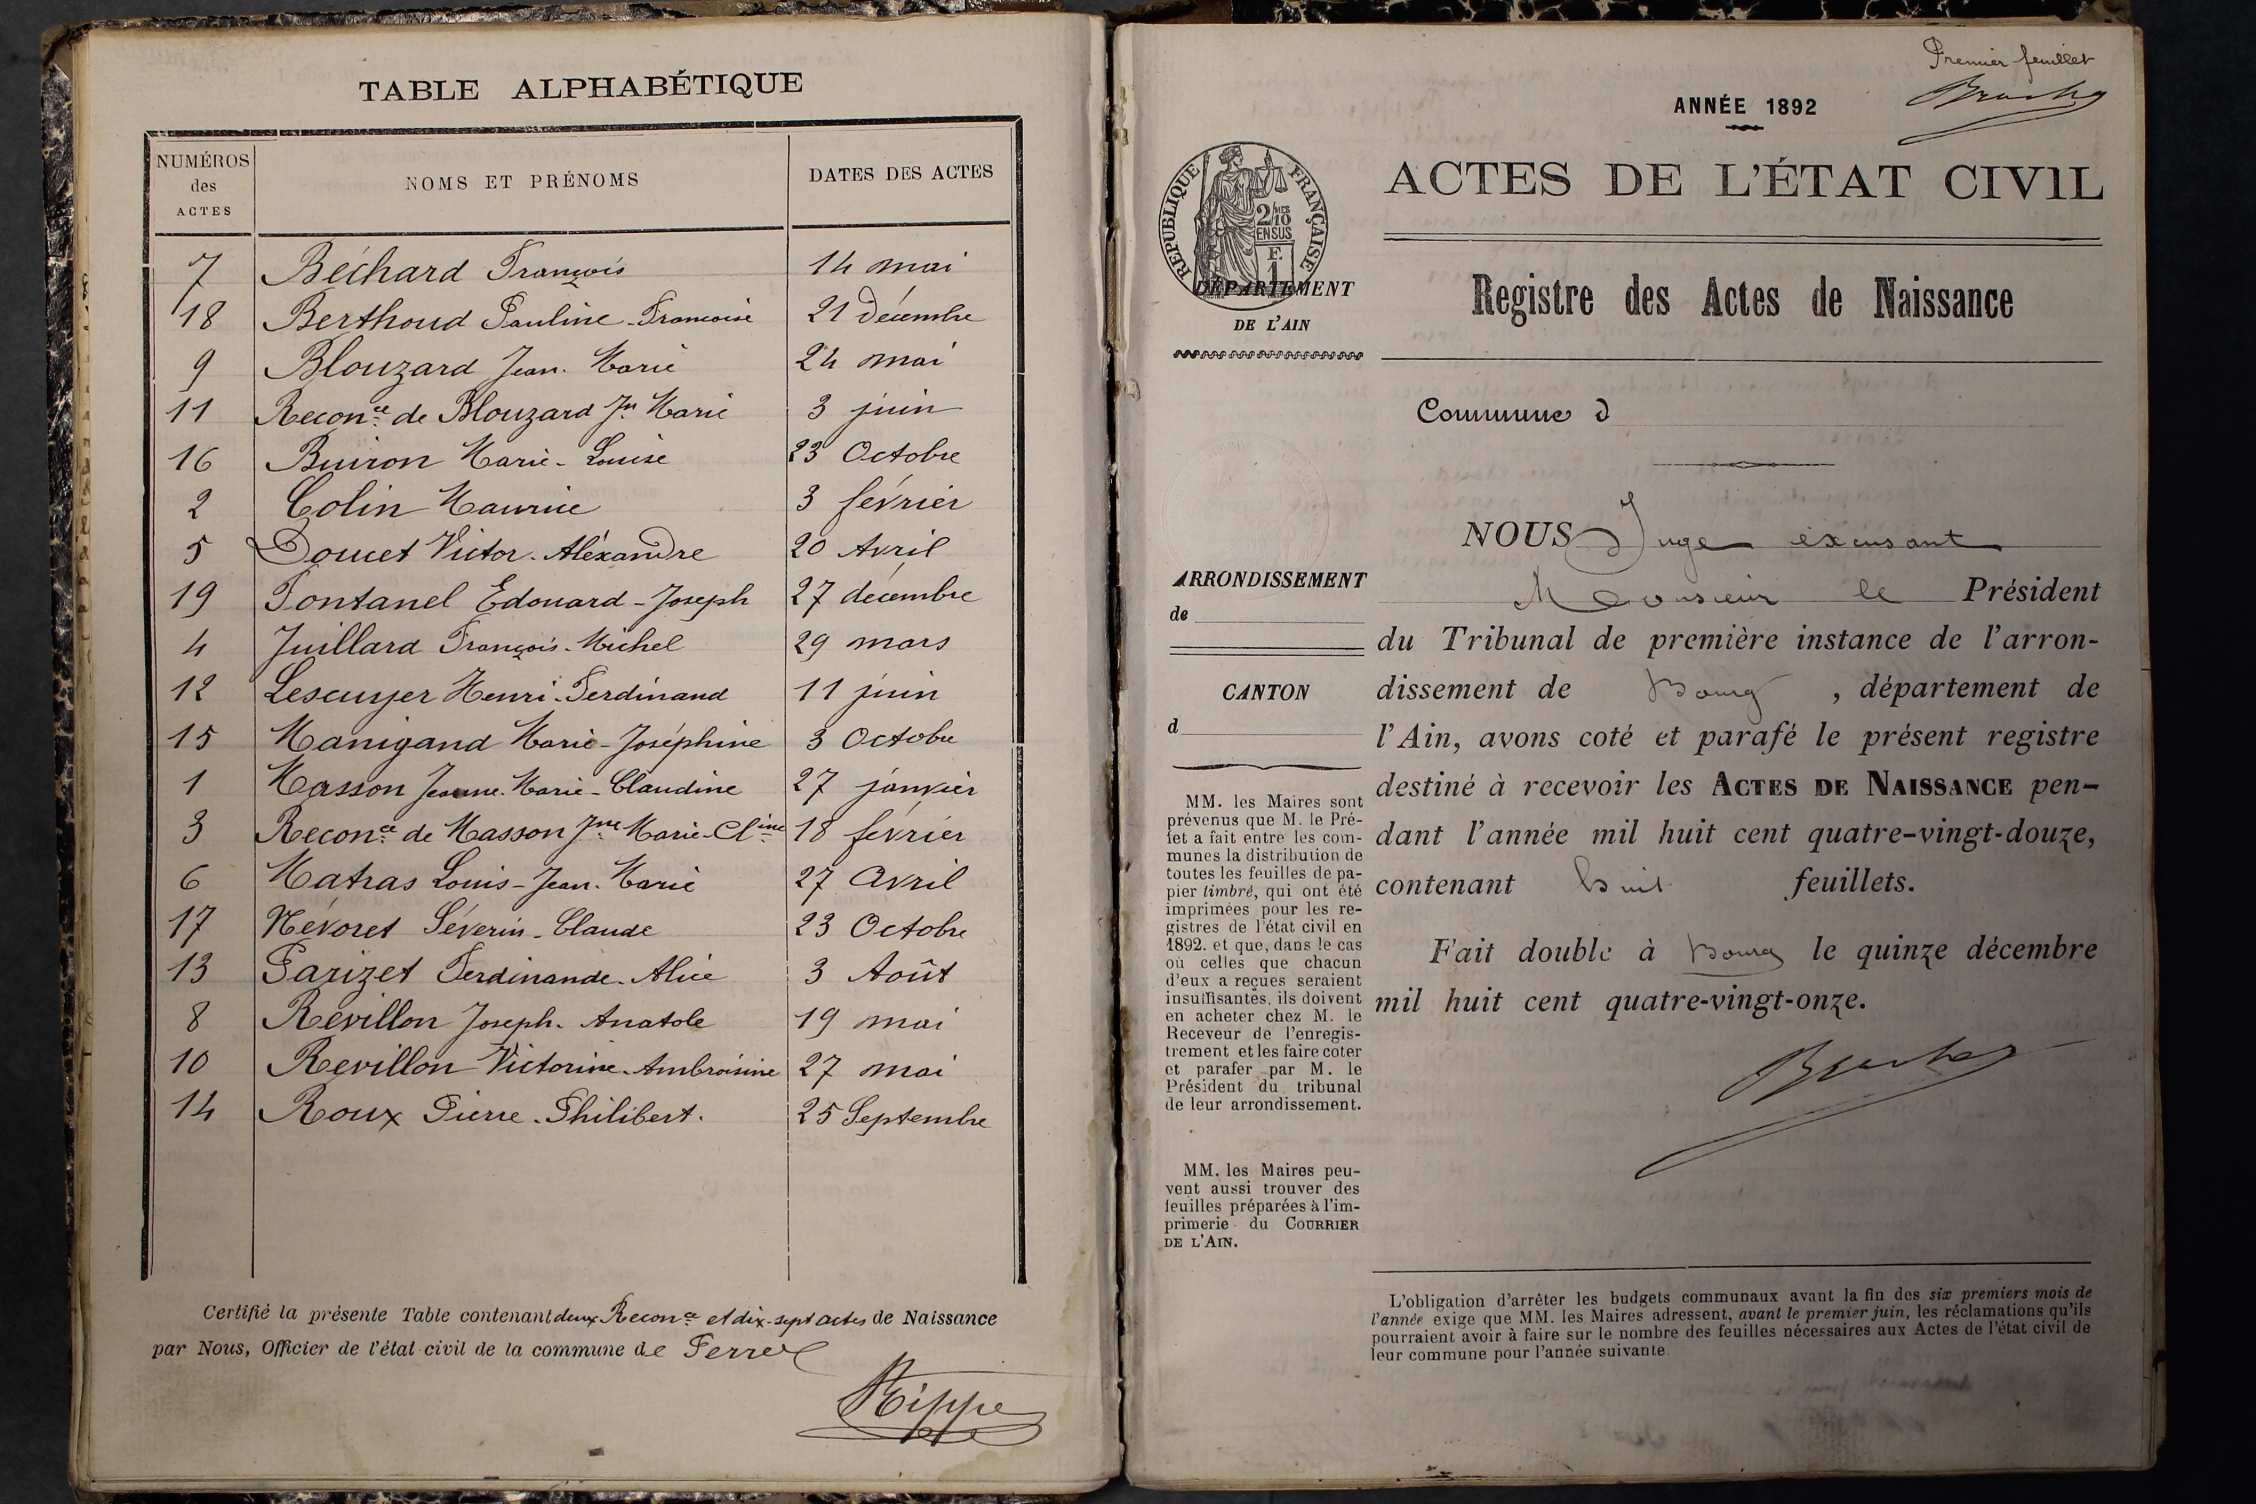 TABLE ALPHABÉTIQUE
NUMÉROS des ACTES NOMS ET PRÉNOMS DATES DES ACTES
7 Béchard François 14 mai
18 Berthoud Pauline-Francoise 21 Décembre
9 Blouzard Jean-Marie 24 mai
11 Reconce de Blouzard Jn Marie 3 juin
16 Buiron Marie-Louise 23 Octobre
2 Colin Maurice 3 février
5 Doucet Victor-Aléxandre 20 Avril
19 Fontanel Edouard-Joseph 27 décembre
4 Juillard François-Michel 29 mars
12 Lescuyer Henri-Ferdinand 11 juin
15 Manigand Marie-Joséphine 3 Octobre
1 Masson Jeanne-Marie-Claudine 27 janvier
3 Reconce de Masson Jne Marie-Cline 18 février
6 Matras Louis-Jean-Marie 27 Avril
17 Névoret Séverin-Claude 23 Octobre
13 Parizet Ferdinande-Alice 3 Août
8 Révillon Joseph-Anatole 19 mai
10 Revillon Victorine-Ambroisine 27 mai
14 Roux Pierre-Philibert. 25 Septembre
Certifié la présente Table contenant deux Reconce et dix-sept actes de Naissance
par Nous, Officier de l'état civil de la commune de
Premier feuillet
ANNÉE 1892
ACTES DE L'ÉTAT CIVIL
RÉPUBLIQUE FRANÇAISE
2/10 EN SUS
F. 1
DÉPARTEMENT
DE L'AIN
Registre des Actes de Naissance
Commune d
NOUS Juge éxcusant
Monsieur le Président
du Tribunal de première instance de l'arron-
dissement de Bourg, département de
l'Ain, avons coté et parafé le présent registre
destiné à recevoir les ACTES DE NAISSANCE pen-
dant l'année mil huit cent quatre-vingt-douze,
contenant huit feuillets.
Fait double à Bourg le quinze décembre
mil huit cent quatre-vingt-onze.
ARRONDISSEMENT
de
CANTON
d
MM. les Maires sont
prévenus que M. le Pré-
fet a fait entre les com-
munes la distribution de
toutes les feuilles de pa-
pier timbré, qui ont été
imprimées pour les re-
gistres de l'état civil en
1892. et que, dans le cas
où celles que chacun
d'eux a reçues seraient
insuffisantes, ils doivent
en acheter chez M. le
Receveur de l'enregis-
trement et les faire coter
et parafer par M. le
Président du tribunal
de leur arrondissement.
MM. les Maires peu-
vent aussi trouver des
feuilles préparées à l'im-
primerie du COURRIER
DE L'AIN.
L'obligation d'arrêter les budgets communaux avant la fin des six premiers mois de
l'année exige que MM. les Maires adressent, avant le premier juin, les réclamations qu'ils
pourraient avoir à faire sur le nombre des feuilles nécessaires aux Actes de l'état civil de
leur commune pour l'année suivante.